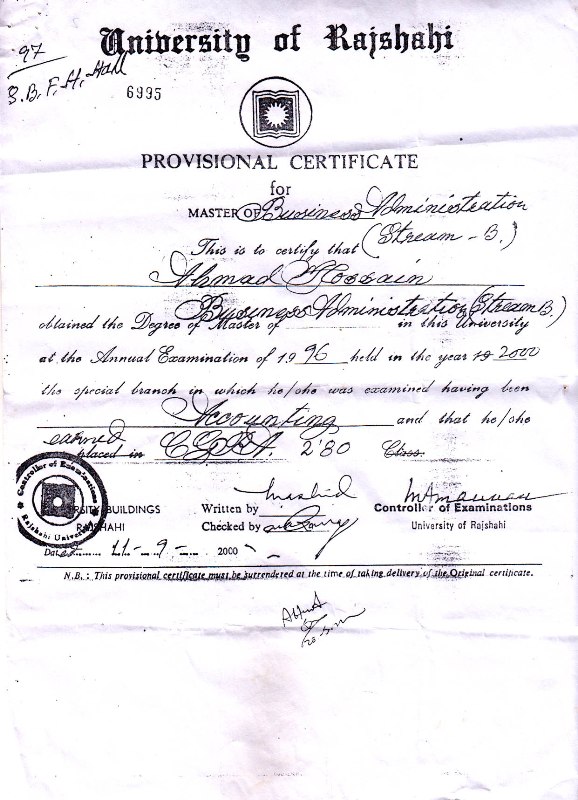 University of Rajshahi
97
S.B.F.H. Hall
6995
PROVISIONAL CERTIFICATE
for
MASTER OF Business Administration
(Stream - B.)
This is to certify that
Ahmad Hossain
Business Administration (Stream B.)
obtained the Degree of Master of in this University
at the Annual Examination of 1996 held in the year 19 2000
the special branch in which he/she was examined having been
Accounting and that he/she
earned
placed in CGPA. 2.80 Class.
Controller of Examinations
Rajshahi University
RSITY BUILDINGS
RAJSHAHI
Written by
Checked by
Controller of Examinations
University of Rajshahi
Dated 11-9- 2000
N.B.: This provisional certificate must be surrendered at the time of taking delivery of the Original certificate.